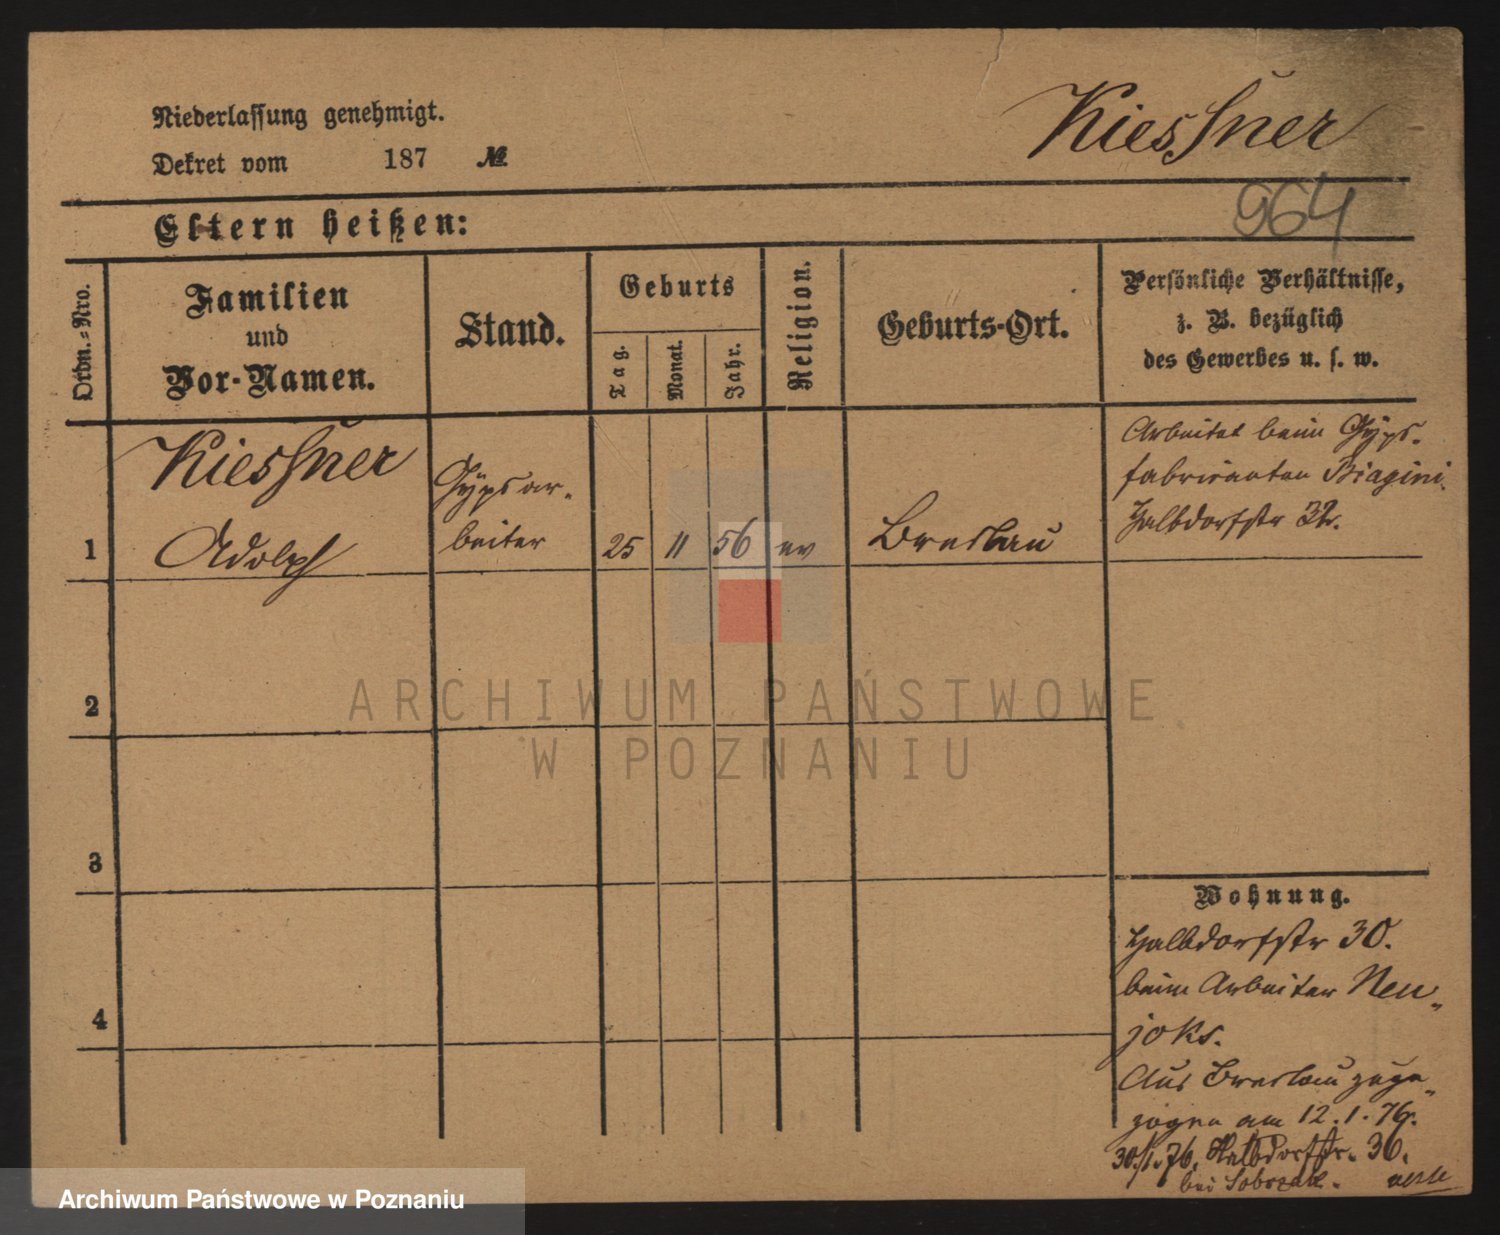 Niederlassung genehmigt.
Dekret vom 187 №
Kiessner
964
Eltern heißen:
Ordn.-Nro.
Familien
und
Vor-Namen.
Stand.
Geburts
Tag.
Monat.
Jahr.
Religion.
Geburts-Ort.
Persönliche Verhältnisse,
z. B. bezüglich
des Gewerbes u. s. w.
1
Kiessner
Adolph
Gypsar-
beiter
25
11
56
ev
Breslau
Arbeitet beim Gyps-
fabrikanten Biagini
Halbdorfstr 32.
2
3
4
Wohnung.
Halbdorfstr 30.
beim Arbeiter Neu-
joks.
Aus Breslau zuge-
zogen am 12.1.76.
30./1.76. Halbdorfstr. 36.
bei Sobczak.
ARCHIWUM PAŃSTWOWE
W POZNANIU
Archiwum Państwowe w Poznaniu